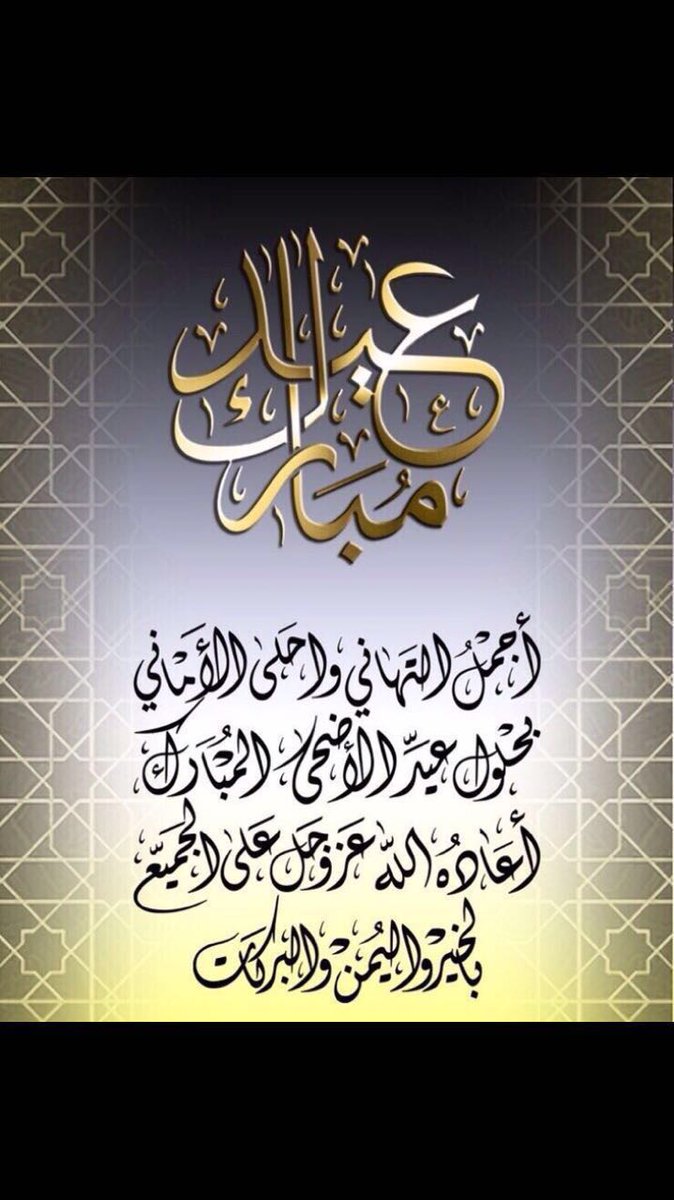 عيدك
مُبارك
أجملُ التهاني واحلى الأماني
بحلول عيد الأضحى المُبارك
أعادُه الله عزوجل على الجميع
بالخير واليُمن والبركات